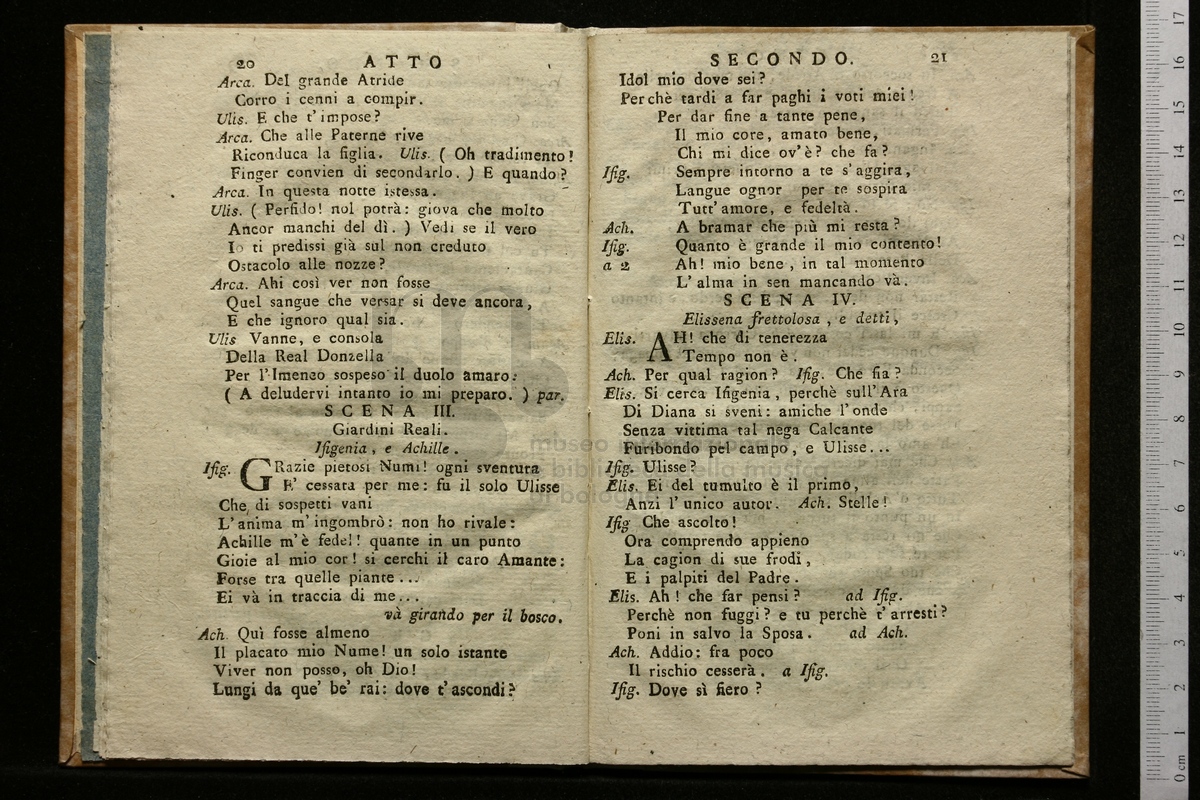 20 ATTO
Arca. Del grande Atride
Corro i cenni a compir.
Ulis. E che t'impose?
Arca. Che alle Paterne rive
Riconduca la figlia. Ulis. ( Oh tradimento!
Finger convien di secondarlo. ) E quando?
Arca. In questa notte istessa.
Ulis. ( Perfido! nol potrà: giova che molto
Ancor manchi del dì. ) Vedi se il vero
Io ti predissi già sul non creduto
Ostacolo alle nozze?
Arca. Ahi così ver non fosse
Quel sangue che versar si deve ancora,
E che ignoro qual sia.
Ulis Vanne, e consola
Della Real Donzella
Per l'Imeneo sospeso il duolo amaro:
( A deludervi intanto io mi preparo. ) par.
SCENA III.
Giardini Reali.
Ifigenia, e Achille.
Ifig. GRazie pietosi Numi! ogni sventura
E' cessata per me: fu il solo Ulisse
Che di sospetti vani
L'anima m'ingombrò: non ho rivale:
Achille m'è fedel! quante in un punto
Gioie al mio cor! si cerchi il caro Amante:
Forse tra quelle piante...
Ei và in traccia di me...
và girando per il bosco.
Ach. Quì fosse almeno
Il placato mio Nume! un solo istante
Viver non posso, oh Dio!
Lungi da que' be' rai: dove t'ascondi?
SECONDO. 21
Idol mio dove sei?
Perchè tardi a far paghi i voti miei!
Per dar fine a tante pene,
Il mio core, amato bene,
Chi mi dice ov'è? che fa?
Ifig. Sempre intorno a te s'aggira,
Langue ognor per te sospira
Tutt'amore, e fedeltà.
Ach. A bramar che più mi resta?
Ifig. Quanto è grande il mio contento!
a 2 Ah! mio bene, in tal momento
L'alma in sen mancando và.
SCENA IV.
Elissena frettolosa, e detti,
Elis. AH! che di tenerezza
Tempo non è.
Ach. Per qual ragion? Ifig. Che fia?
Elis. Si cerca Ifigenia, perchè sull'Ara
Di Diana si sveni: amiche l'onde
Senza vittima tal nega Calcante
Furibondo pel campo, e Ulisse...
Ifig. Ulisse?
Elis. Ei del tumulto è il primo,
Anzi l'unico autor. Ach. Stelle!
Ifig Che ascolto!
Ora comprendo appieno
La cagion di sue frodi,
E i palpiti del Padre.
Elis. Ah! che far pensi? ad Ifig.
Perchè non fuggi? e tu perchè t'arresti?
Poni in salvo la Sposa. ad Ach.
Ach. Addio: fra poco
Il rischio cesserà. a Ifig.
Ifig. Dove sì fiero?
museo internazionale
e biblioteca della musica
di bologna
0 cm 1 2 3 4 5 6 7 8 9 10 11 12 13 14 15 16 17